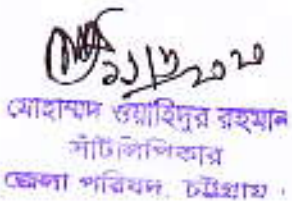 মোহাম্মদ ওয়াহিদুর রহমান
সাঁটলিপিকার
জেলা পরিষদ, চট্টগ্রাম।